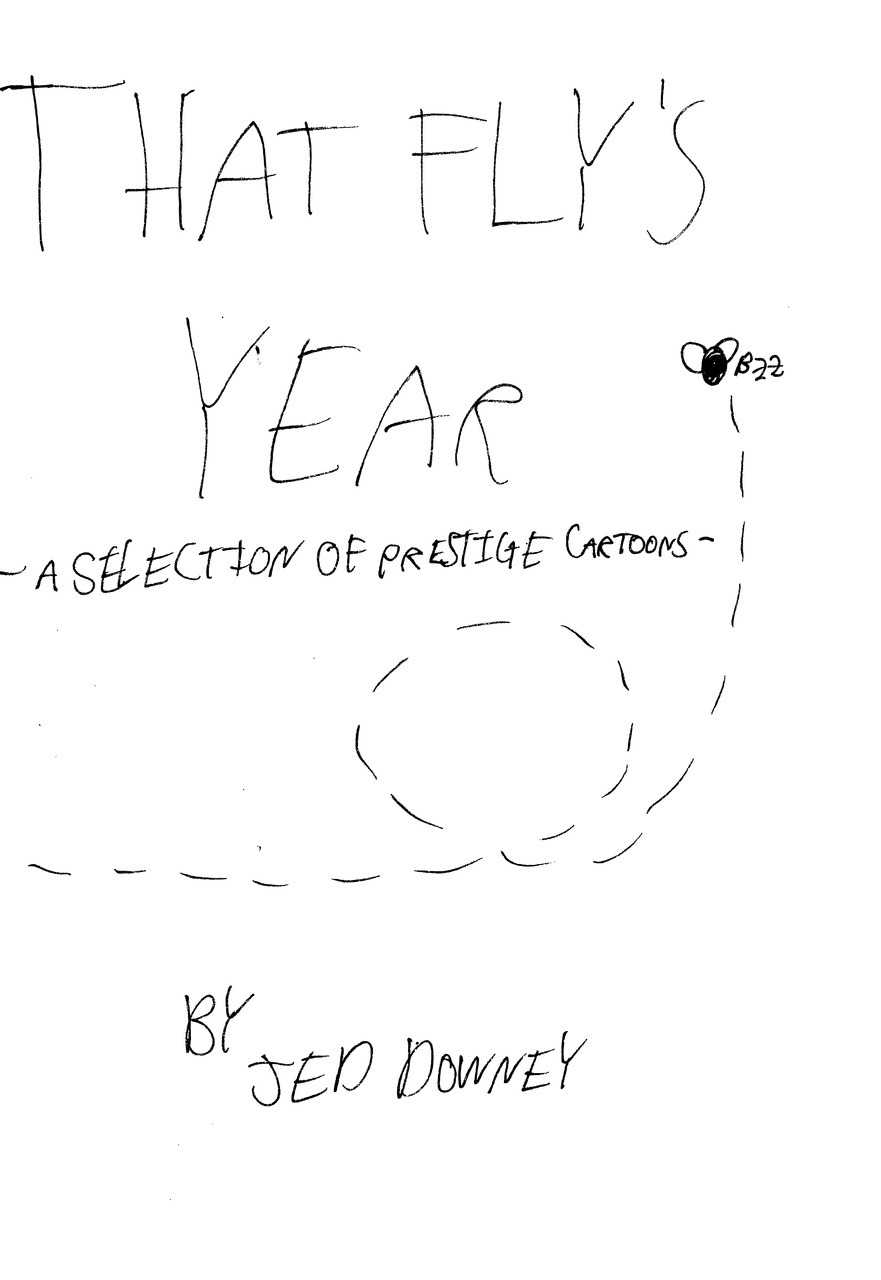 THAT FLY'S
YEAR
BZZ
- A SELECTION OF PRESTIGE CARTOONS -
BY
JED DOWNEY